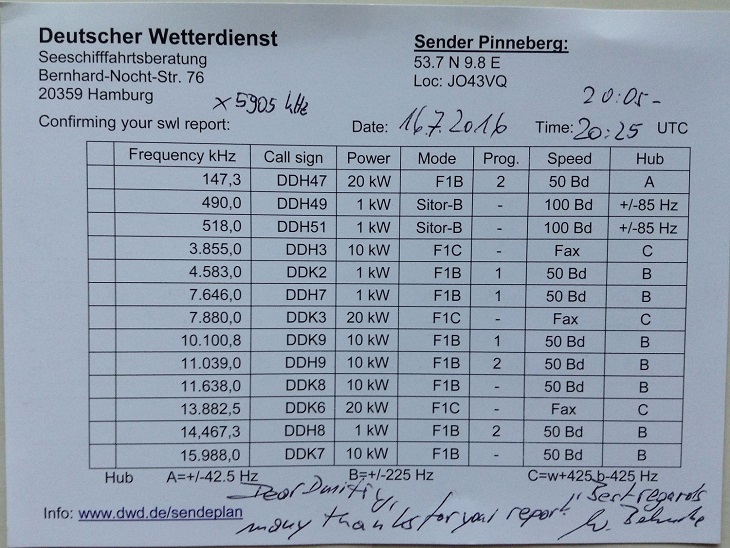 Deutscher Wetterdienst
Seeschifffahrtsberatung
Bernhard-Nocht-Str. 76
20359 Hamburg
Sender Pinneberg:
53.7 N 9.8 E
Loc: JO43VQ
x 5905 kHz
20:05-
Confirming your swl report: Date: 16.7.2016 Time: 20:25 UTC
Frequency kHz Call sign Power Mode Prog. Speed Hub
147,3 DDH47 20 kW F1B 2 50 Bd A
490,0 DDH49 1 kW Sitor-B - 100 Bd +/-85 Hz
518,0 DDH51 1 kW Sitor-B - 100 Bd +/-85 Hz
3.855,0 DDH3 10 kW F1C - Fax C
4.583,0 DDK2 1 kW F1B 1 50 Bd B
7.646,0 DDH7 1 kW F1B 1 50 Bd B
7.880,0 DDK3 20 kW F1C - Fax C
10.100,8 DDK9 10 kW F1B 1 50 Bd B
11.039,0 DDH9 10 kW F1B 2 50 Bd B
11.638,0 DDK8 10 kW F1B - 50 Bd B
13.882,5 DDK6 20 kW F1C - Fax C
14,467,3 DDH8 1 kW F1B 2 50 Bd B
15.988,0 DDK7 10 kW F1B - 50 Bd B
Hub A=+/-42.5 Hz B=+/-225 Hz C=w+425,b-425 Hz
Dear Dmitiy,
many thanks for your report
Best regards
Info: www.dwd.de/sendeplan